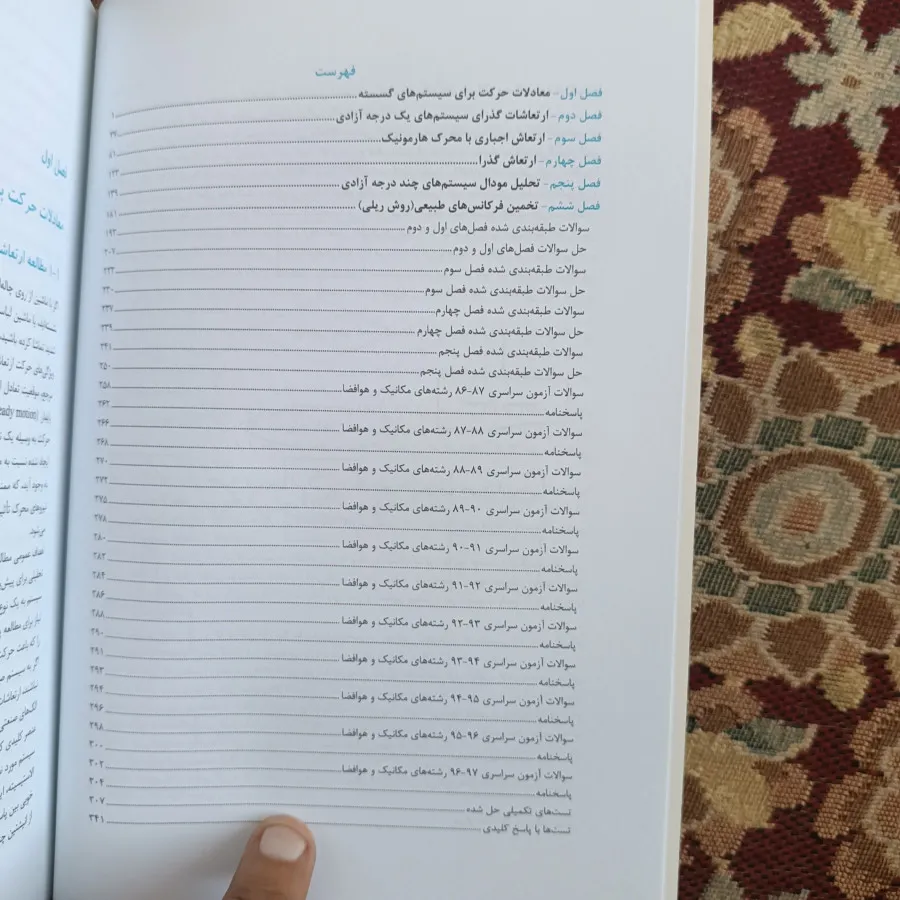 فهرست
فصل اول- معادلات حرکت برای سیستم‌های گسسته ۱
فصل دوم- ارتعاشات گذرای سیستم‌های یک درجه آزادی ۳۷
فصل سوم- ارتعاش اجباری با محرک هارمونیک ۸۱
فصل چهارم- ارتعاش گذرا ۱۲۳
فصل پنجم- تحلیل مودال سیستم‌های چند درجه آزادی ۱۳۹
فصل ششم- تخمین فرکانس‌های طبیعی(روش ریلی) ۱۸۱
سوالات طبقه‌بندی شده فصل‌های اول و دوم ۱۹۳
حل سوالات فصل‌های اول و دوم ۲۰۷
سوالات طبقه‌بندی شده فصل سوم
حل سوالات طبقه‌بندی شده فصل سوم ۲۳۰
سوالات طبقه‌بندی شده فصل چهارم ۲۳۷
حل سوالات طبقه‌بندی شده فصل چهارم ۲۳۹
سوالات طبقه‌بندی شده فصل پنجم ۲۴۱
حل سوالات طبقه‌بندی شده فصل پنجم ۲۵۰
سوالات آزمون سراسری ۸۷-۸۶ رشته‌های مکانیک و هوافضا ۲۵۸
پاسخنامه ۲۶۳
سوالات آزمون سراسری ۸۸-۸۷ رشته‌های مکانیک و هوافضا ۲۶۶
پاسخنامه ۲۶۸
سوالات آزمون سراسری ۸۹-۸۸ رشته‌های مکانیک و هوافضا ۲۷۰
پاسخنامه ۲۷۳
سوالات آزمون سراسری ۹۰-۸۹ رشته‌های مکانیک و هوافضا ۲۷۵
پاسخنامه ۲۷۸
سوالات آزمون سراسری ۹۱-۹۰ رشته‌های مکانیک و هوافضا ۲۸۰
پاسخنامه ۲۸۳
سوالات آزمون سراسری ۹۲-۹۱ رشته‌های مکانیک و هوافضا ۲۸۴
پاسخنامه ۲۸۶
سوالات آزمون سراسری ۹۳-۹۲ رشته‌های مکانیک و هوافضا ۲۸۸
پاسخنامه ۲۹۰
سوالات آزمون سراسری ۹۴-۹۳ رشته‌های مکانیک و هوافضا ۲۹۱
پاسخنامه ۲۹۳
سوالات آزمون سراسری ۹۵-۹۴ رشته‌های مکانیک و هوافضا ۲۹۴
پاسخنامه ۲۹۶
سوالات آزمون سراسری ۹۶-۹۵ رشته‌های مکانیک و هوافضا ۲۹۸
پاسخنامه ۳۰۰
سوالات آزمون سراسری ۹۷-۹۶ رشته‌های مکانیک و هوافضا ۳۰۲
پاسخنامه ۳۰۴
تست‌های تکمیلی حل شده ۳۰۷
تست‌ها با پاسخ کلیدی ۳۴۱
فصل اول
معادلات حرکت
۱-۱ مطالعه
اگر با ماشین از روی
ویژگی‌های حرکت
مرجع، موقعیت تعادل
حرکت به وسیله یک
ایجاد شده نسبت به
به وجود آیند، که
نیروهای محرک
می‌شود.
اهداف عمومی
تحلیلی برای
سیستم به یک نوع
نیاز برای مطالعه
را که باعث حرکت
اگر به سیستم
نباشند، ارتعاشات
الگ‌های صنعتی
عنصر کلیدی
سیستم مورد
الاستیسیته،
خوبی بین